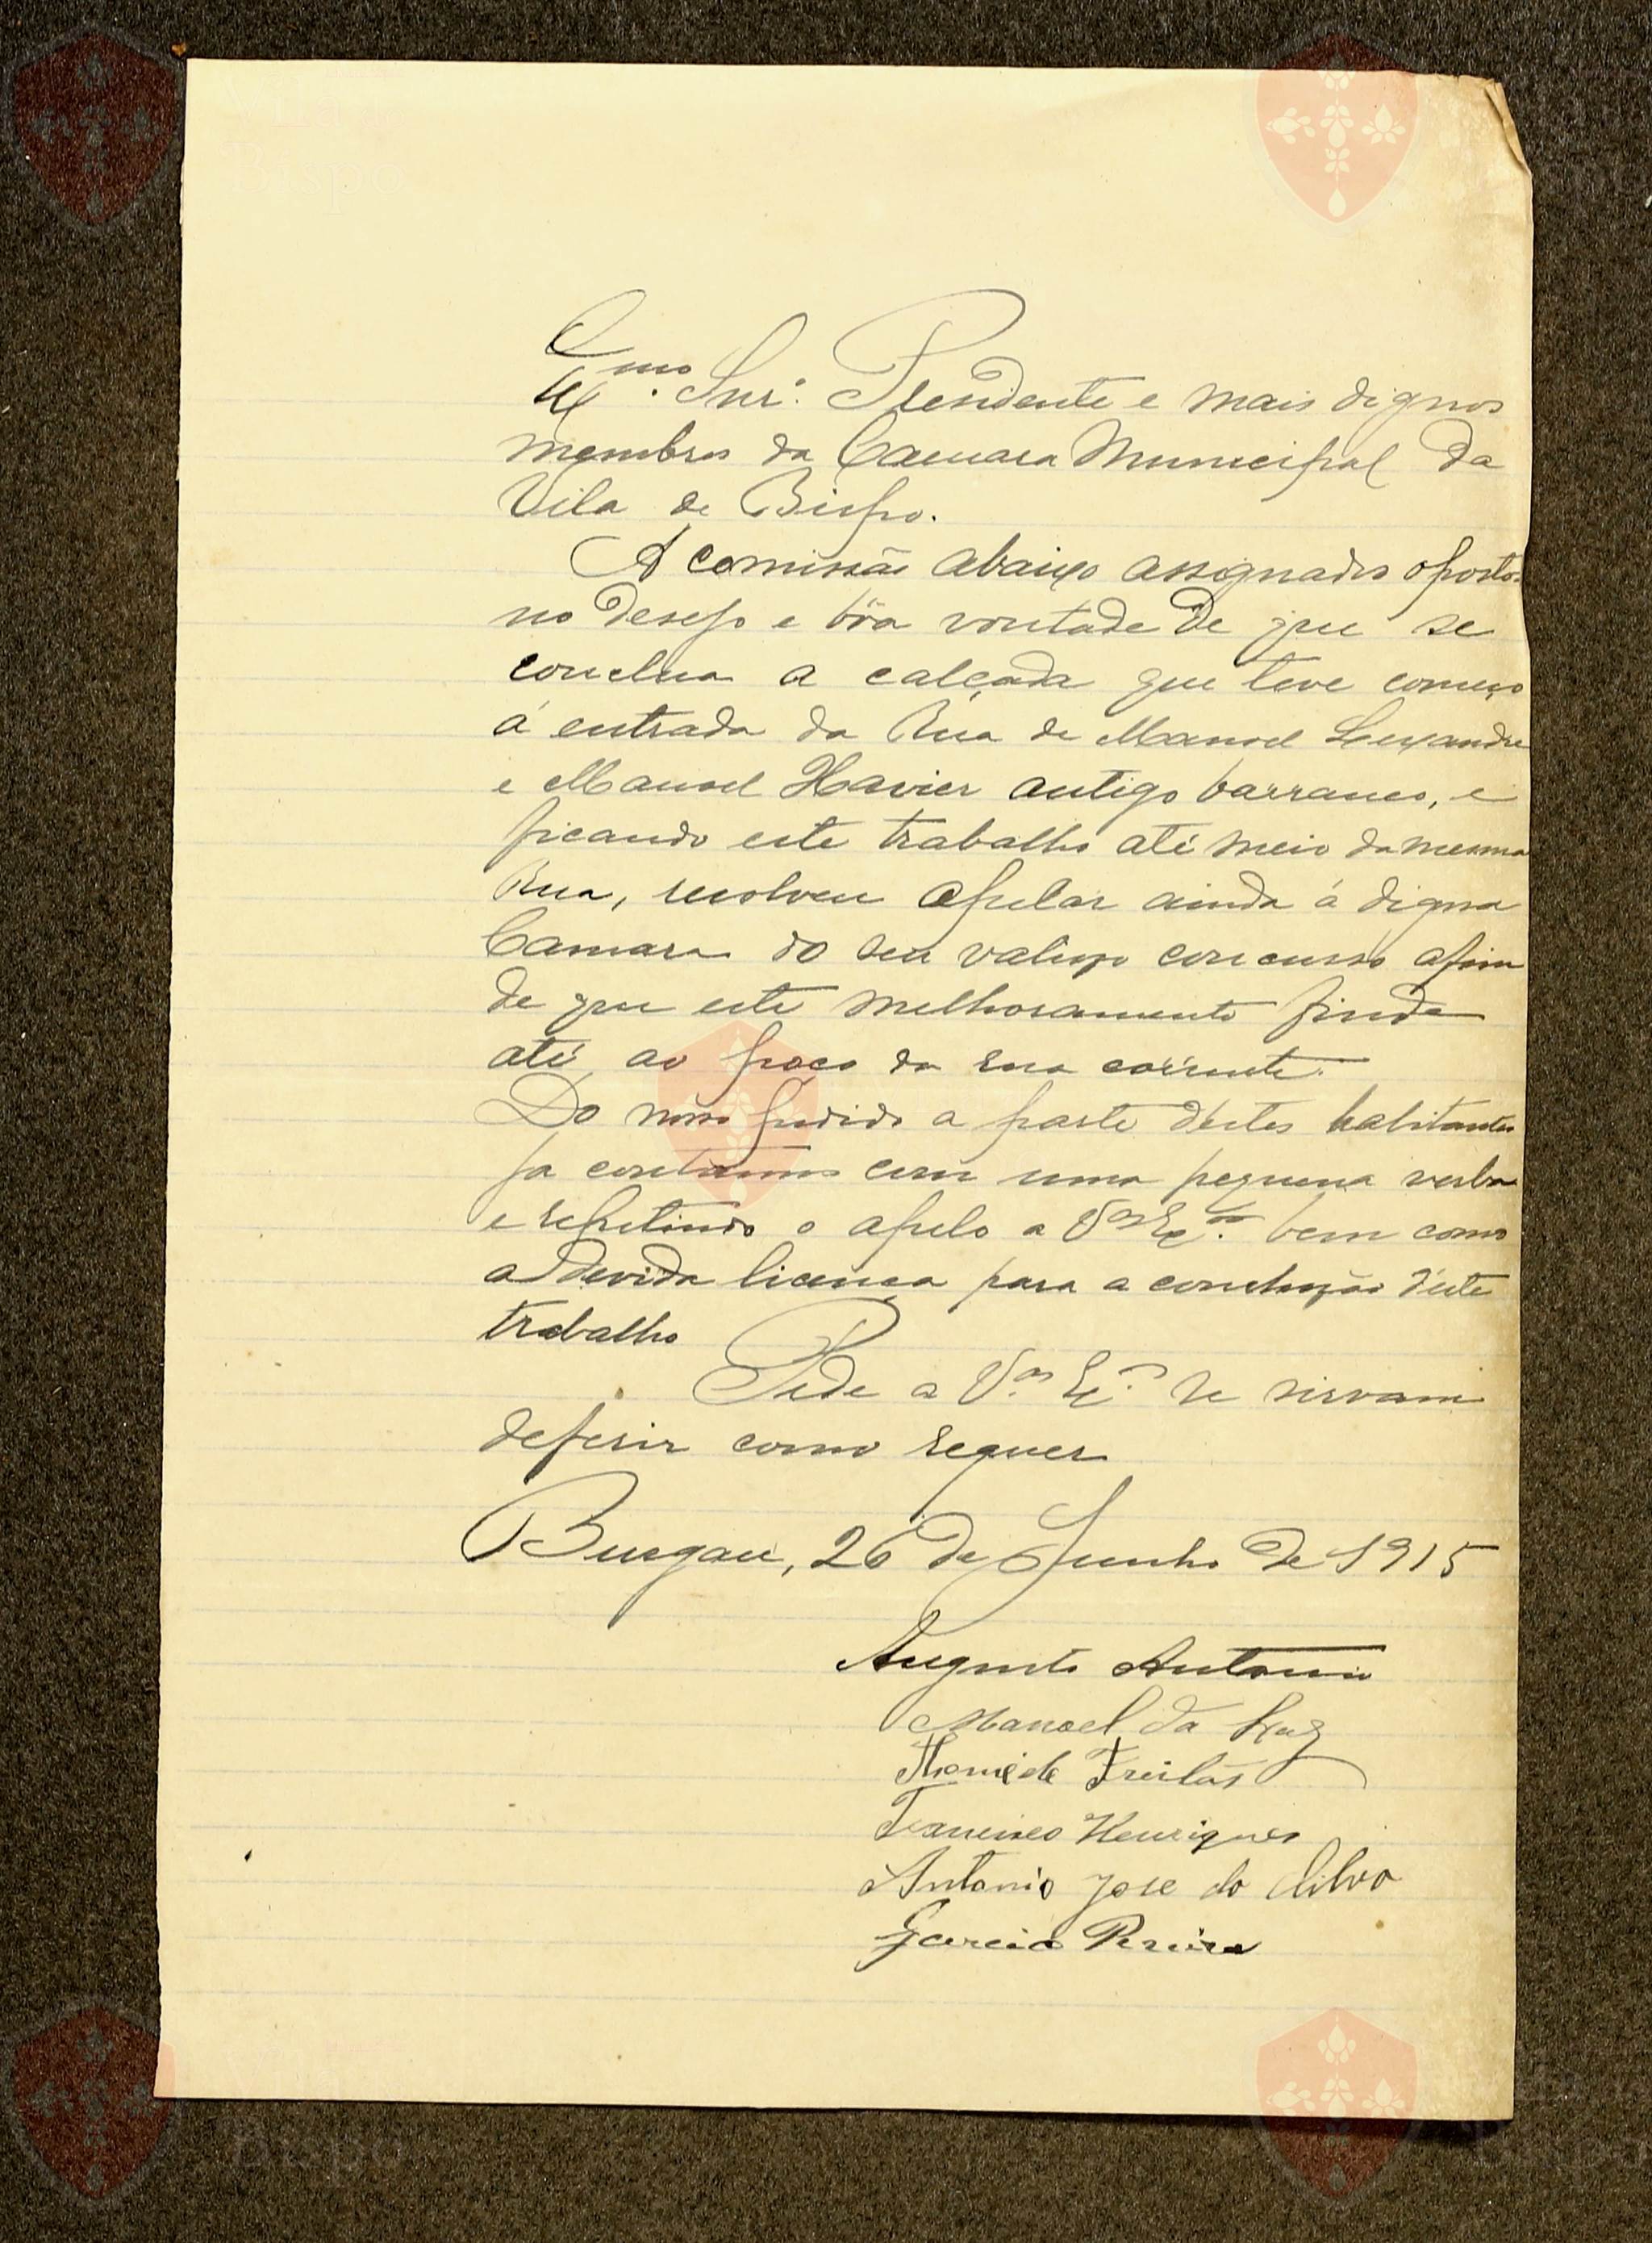 Ex.mo Snr. Presidente e mais dignos
membros da Camara Municipal da
Vila de Bispo.
A comissão abaixo assignados
no desejo e bôa vontade de que se
conclua a calçada que teve começo
á entrada da Rua de Manoel Lexandre
e Manoel Xavier antigo barranco, e
ficando este trabalho até meio da mesma
Rua, resolveu apelar ainda á digna
Camara do seu valioso concurso afim
de que este melhoramento finde
até ao poço da rua corrente.
Do nosso pedido a parte d'estes habitantes
ja contamos com uma pequena verba
e repetindo o apelo a V.as Ex.as bem como
a devida licença para a conclusão d'este
trabalho
Pede a V.as Ex.as se sirvam
deferir como requer
Burgau, 26 de Junho de 1915
Augusto Antonio
Manoel da Luz
Thomé de Freitas
Francisco Henriques
Antonio Jose da Silva
Garcia Pereira
Vila
Bispo
Bispo